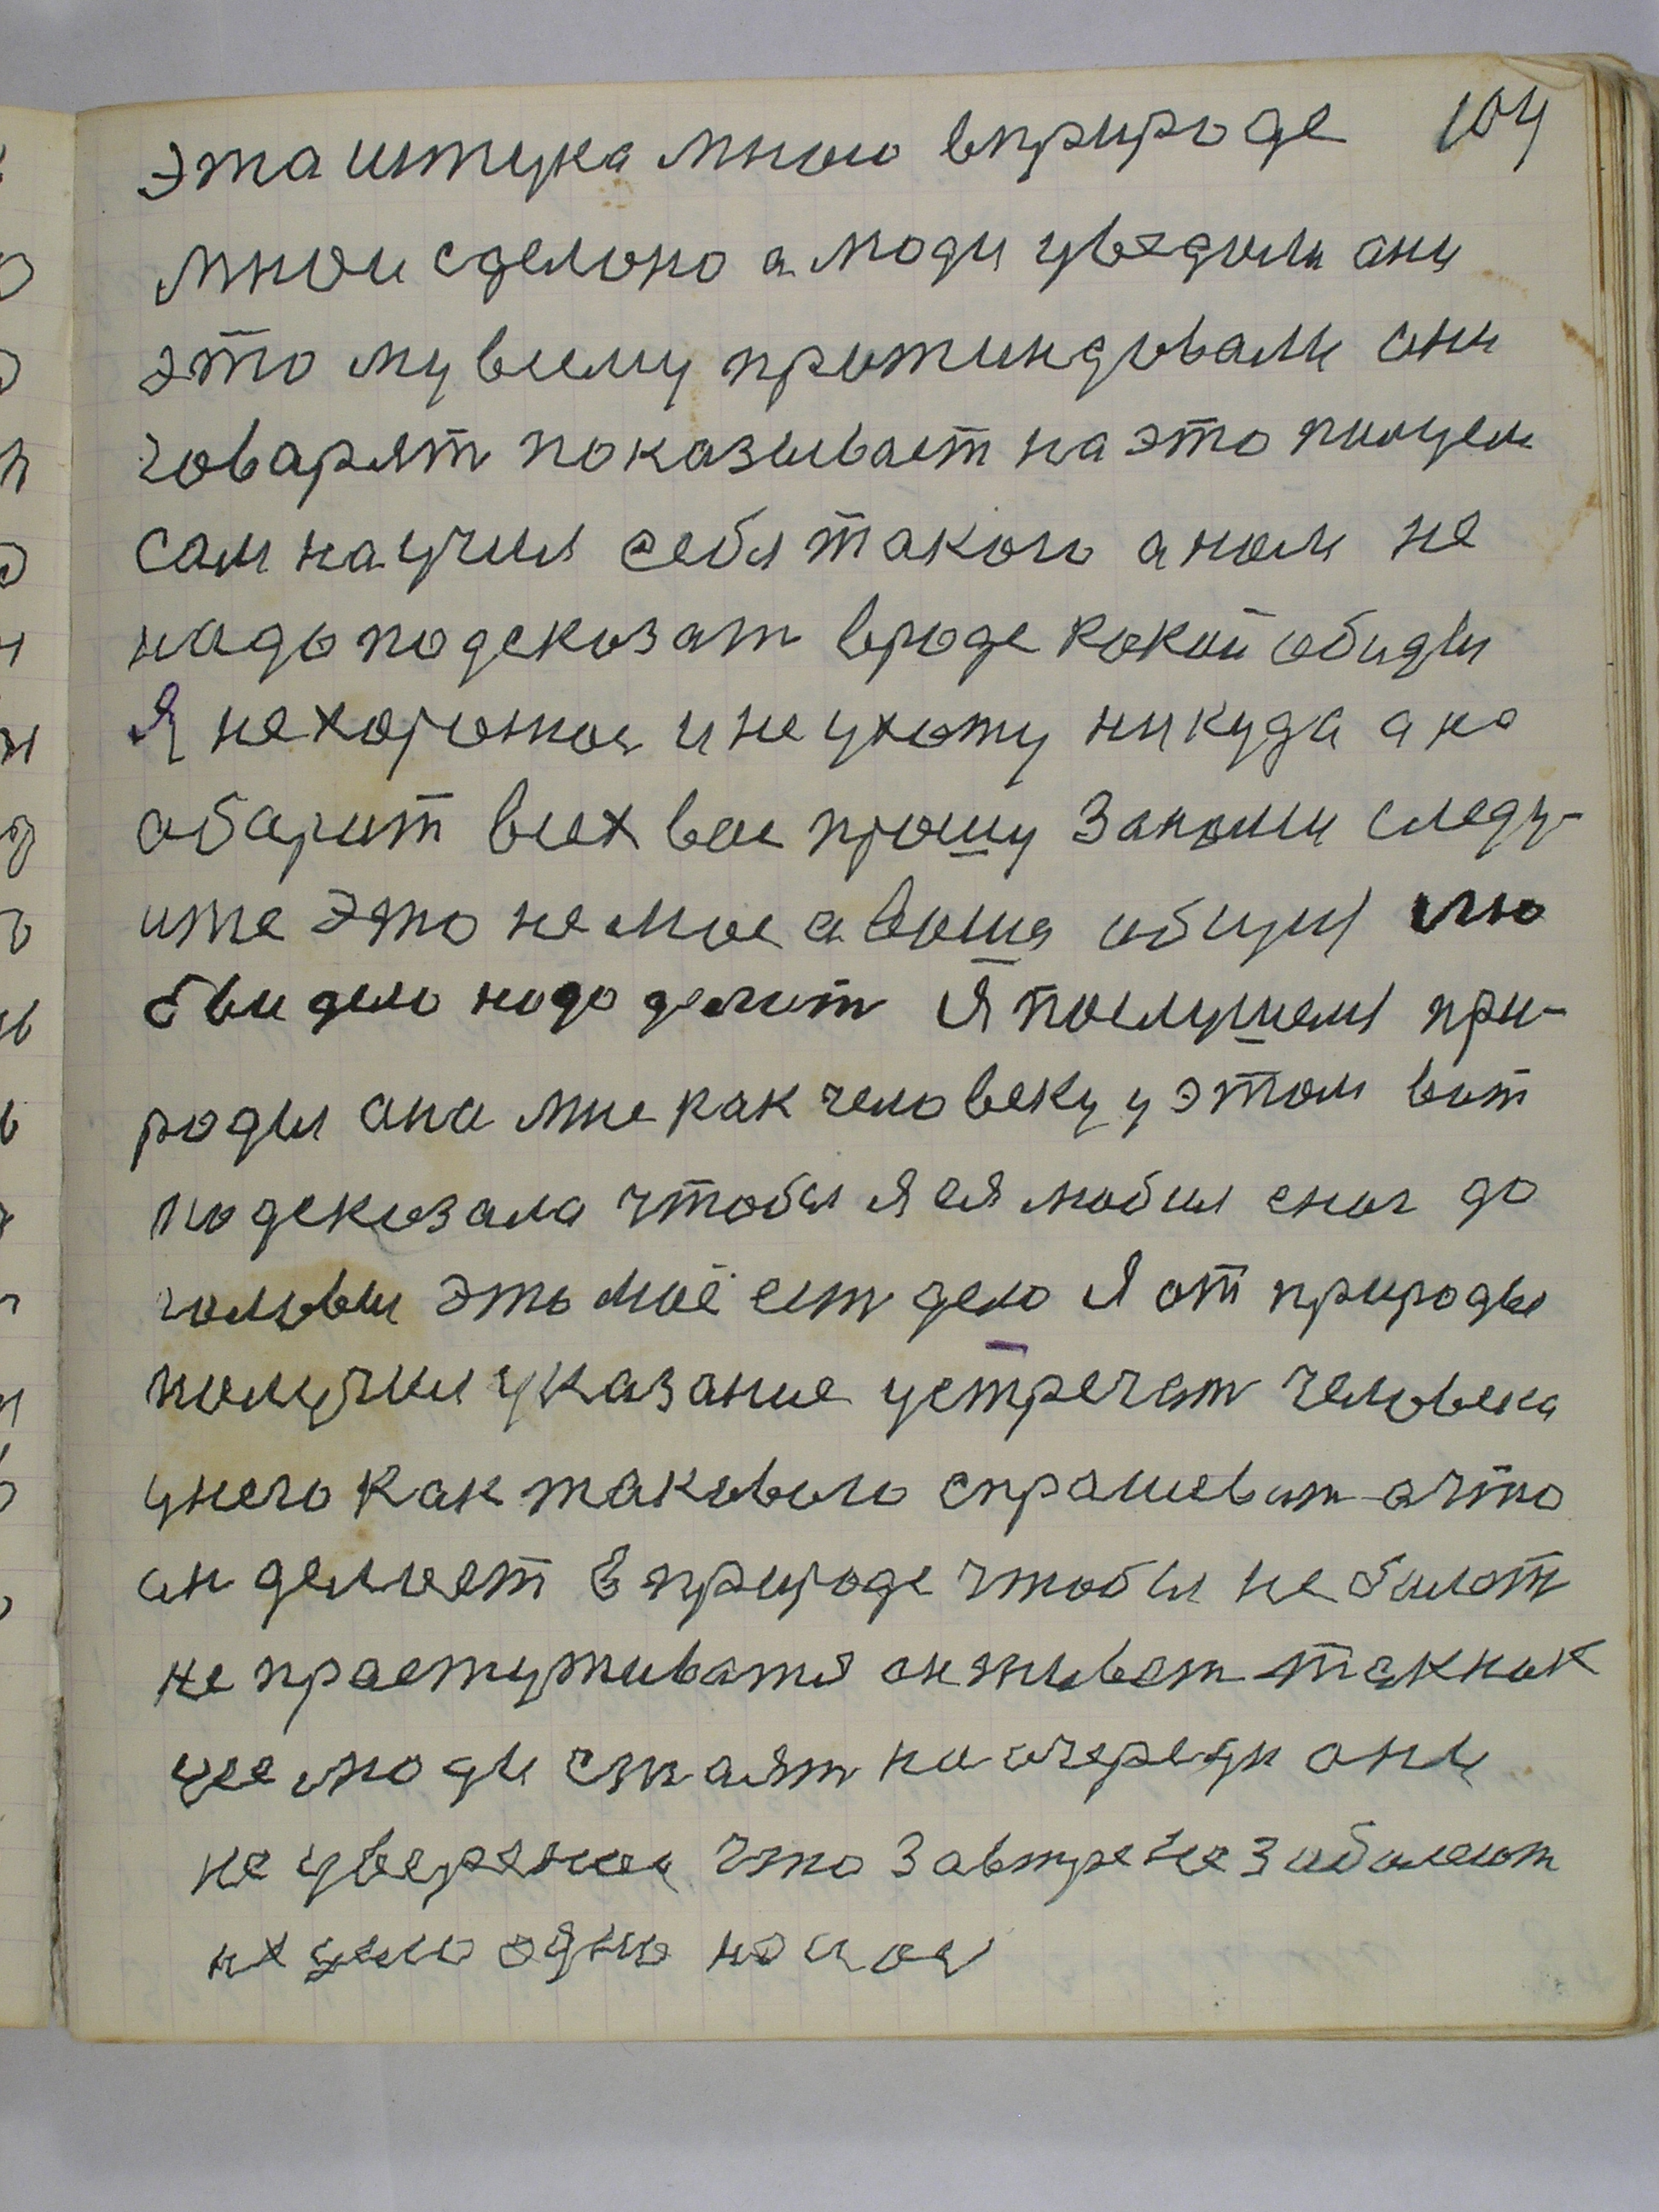 эта штука мною вприроде 104
мною сделоно а люди уведили ани
этому всему притиндовали они
говарят показывает на это пощем
сам научил себя такого а нам не
надо подсказат вроде какой обиды
Я нехоронюс и не ухожу никуда а на
абарит всех вас прошу за нами следу-
ите это не мое а ваша общия лю
бви дело надо делит Я послушелс при-
роды ана мне как человеку у этом вот
подсказала чтобы я ея любил сног до
головы это моё ест дело Я от природы
получил указание устречат человека
унего как таковыго спрашеват ачто
ан делает в природе чтобы не балет
не прастуживатя он живет таккак
усе люди стаят на очереди ани
не уверенны что завтре не забалеют
их усело одно